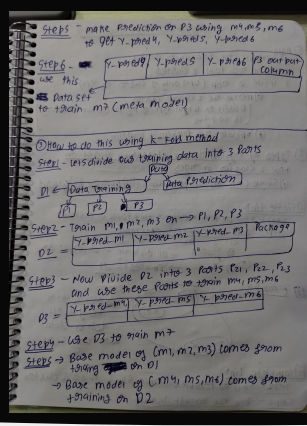 Step5 - make Prediction on P3 using m4, m5, m6
to get Y-pred4, Y-pred5, Y-pred6
Step6 -
use this
Data set
to train m7 (meta model)
Y-pred4 Y-pred5 Y-pred6 P3 output column
② How to do this using K-Fold method
Step1 - lets divide our training data into 3 Parts
Data
D1 ← Data Training Data Prediction
P1 P2 P3
Step2 - Train m1, m2, m3 on → P1, P2, P3
D2 = Y-pred-m1 Y-pred-m2 Y-pred-m3 Package
Step3 - Now Divide D2 into 3 Parts P21, P22, P23
and use these Parts to train m4, m5, m6
D3 = Y-pred-m4 Y-pred-m5 Y-pred-m6
Step4 - Use D3 to train m7
Step5 → Base model of (m1, m2, m3) comes from
traing on D1
→ Base model of (m4, m5, m6) comes from
training on D2